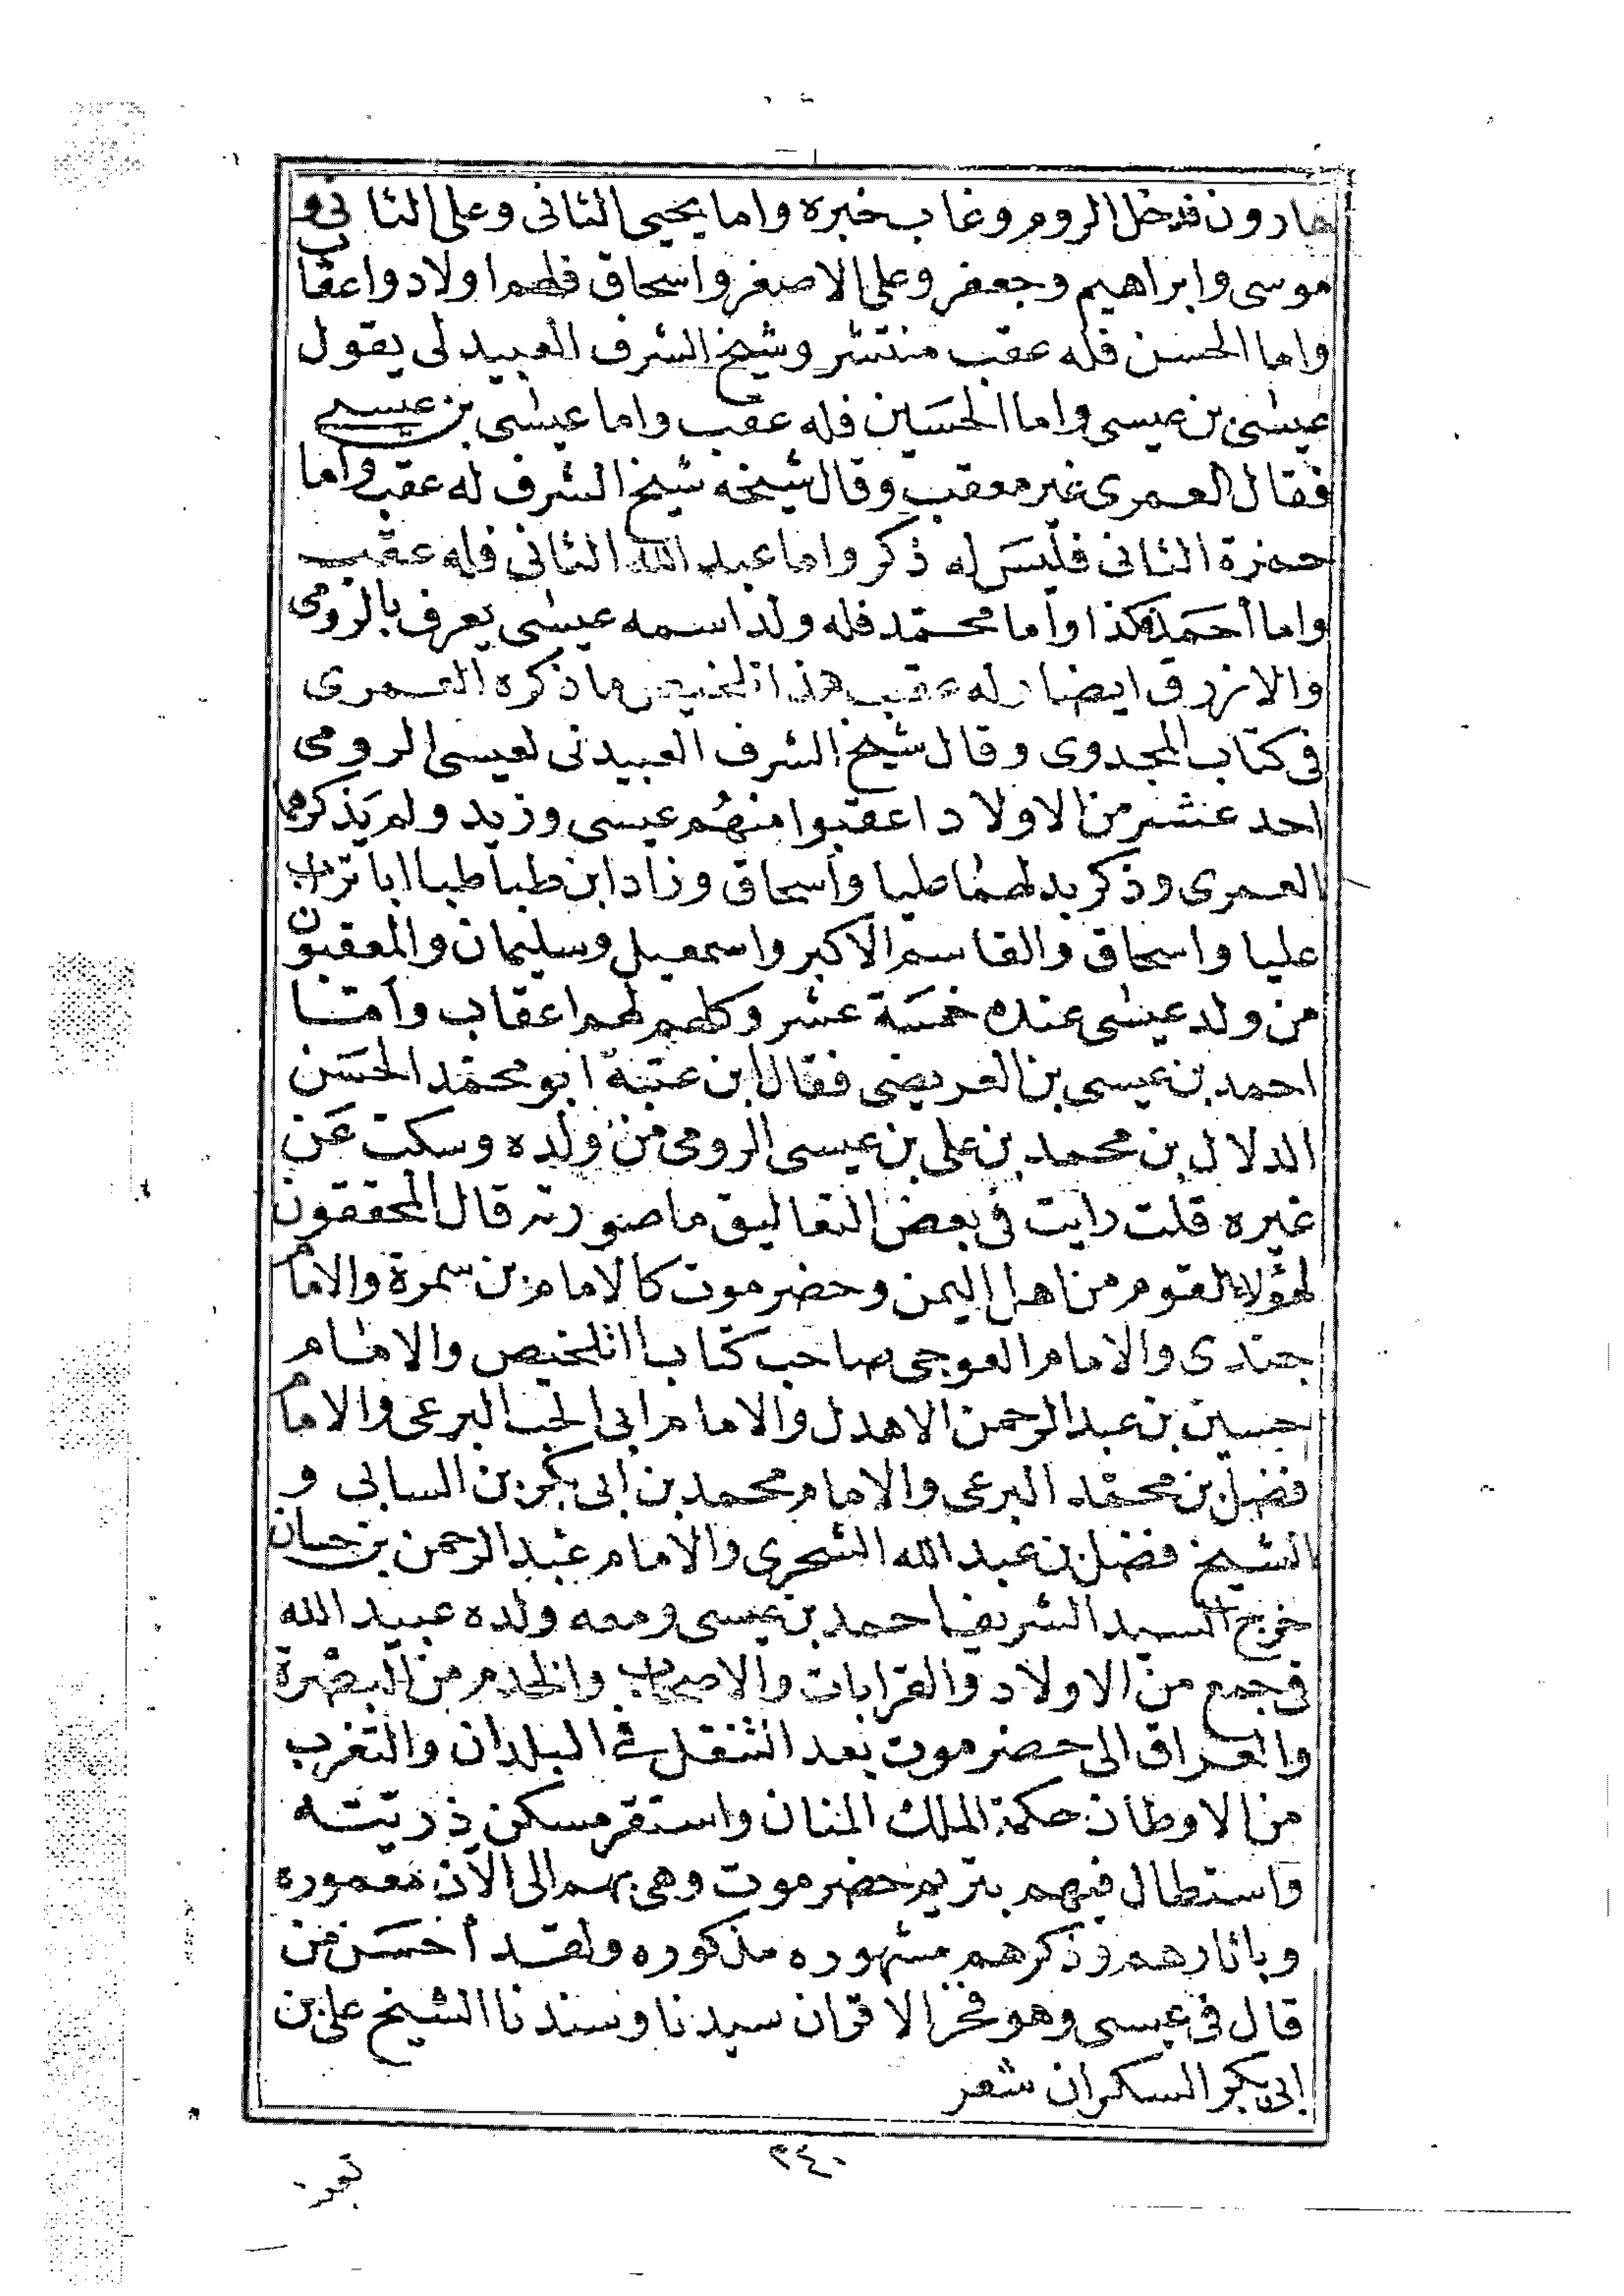 هارون فدخل الروم وغاب خبره واما يحيى الثانى وعلى الثانى و
موسى وابراهيم وجعفر وعلى الاصغر واسحاق فلهم اولاد واعقاب
واما الحسن فله عقب منتشر وشيخ الشرف العبيدلى يقول
عيسى بن عيسى واما الحسين فله عقب واما عيسى بن عيسى
فقال العمرى غير معقب وقال شيخه شيخ الشرف له عقب واما
حمزة الثانى فليس له ذكر واما عبد الله الثانى فله عقب
واما أحمد فكذا واما محمد فله ولد اسمه عيسى يعرف بالرومى
والازرق ايضا وله عقب هذا تلخيص ماذكره العمرى
فى كتاب المجدوى وقال شيخ الشرف العبيدنى لعيسى الرومى
احد عشر من الاولاد اعقبوا منهم عيسى وزيد ولم يذكرها
العمرى وذكر بدلهما عليا وأسحاق وزاد ابن طباطبا ابا تراب
عليا واسحاق والقاسم الاكبر واسمعيل وسليمان والمعقبون
من ولد عيسى عنده خمسة عشر وكلهم لهم اعقاب وأمّا
احمد بن عيسى بن العريضى فقال ابن عتبة ابو محمد الحسن
الدلال بن محمد بن على بن عيسى الرومى من ولده وسكت عن
غيره قلت رايت فى بعض التعاليق ما صورته قال المحققون
لهؤلاء القوم من اهل اليمن وحضرموت كالامام بن سمرة والامام
جندى والامام العوجى صاحب كتاب التلخيص والامام
حسين بن عبد الرحمن الاهدل والامام ابى الحب البرعى والامام
فضل بن محمد البرعى والامام محمد بن ابى بكر بن السابى و
الشيخ فضل بن عبد الله الشحرى والامام عبد الرحمن بن حسان
خرج السيد الشريف احمد بن عيسى ومعه ولده عبيد الله
فى جمع من الاولاد والقرابات والاصحاب والخدم من البصرة
والعراق الى حضرموت بعد التنقل فى البلدان والتغرب
من الاوطان حكمة الملك المنان واستقر مسكن ذريته
واستطال فيهم بتريم حضرموت وهى بهم الى الآن معموره
وباثارهم وذكرهم مشهوره مذكوره ولقد أحسن من
قال فى عيسى وهو فخر الاقران سيدنا وسندنا الشيخ على بن
ابى بكر السكران شعر
٣٤٠